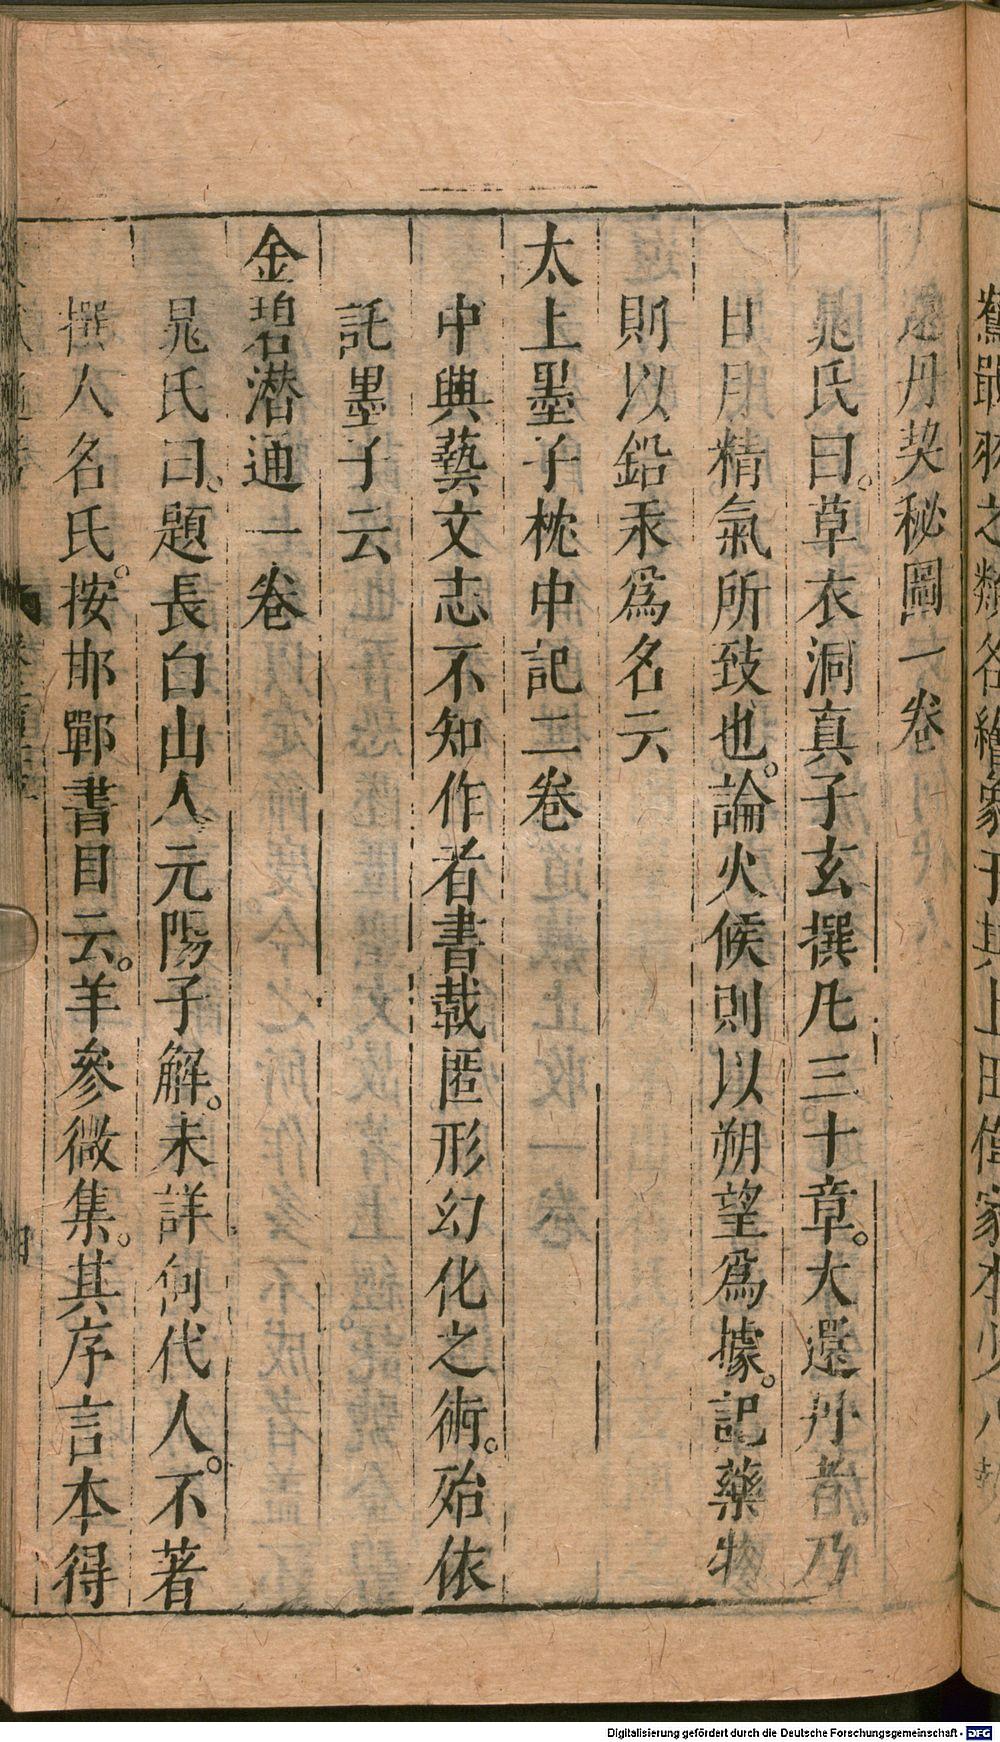 還丹契秘圖一卷
晁氏曰。草衣洞真子玄撰凡三十章。大還丹者。乃
日月精氣所致也。論火候則以朔望爲據。記藥物
則以鉛汞爲名云
太上墨子枕中記二卷
中興藝文志不知作者書載匿形幻化之術。殆依
託墨子云
金碧潜通一卷
晁氏曰。題長白山人元陽子解。未詳何代人。不著
撰人名氏。按邯鄲書目云。羊參微集。其序言本得
Digitalisierung gefördert durch die Deutsche Forschungsgemeinschaft - DFG